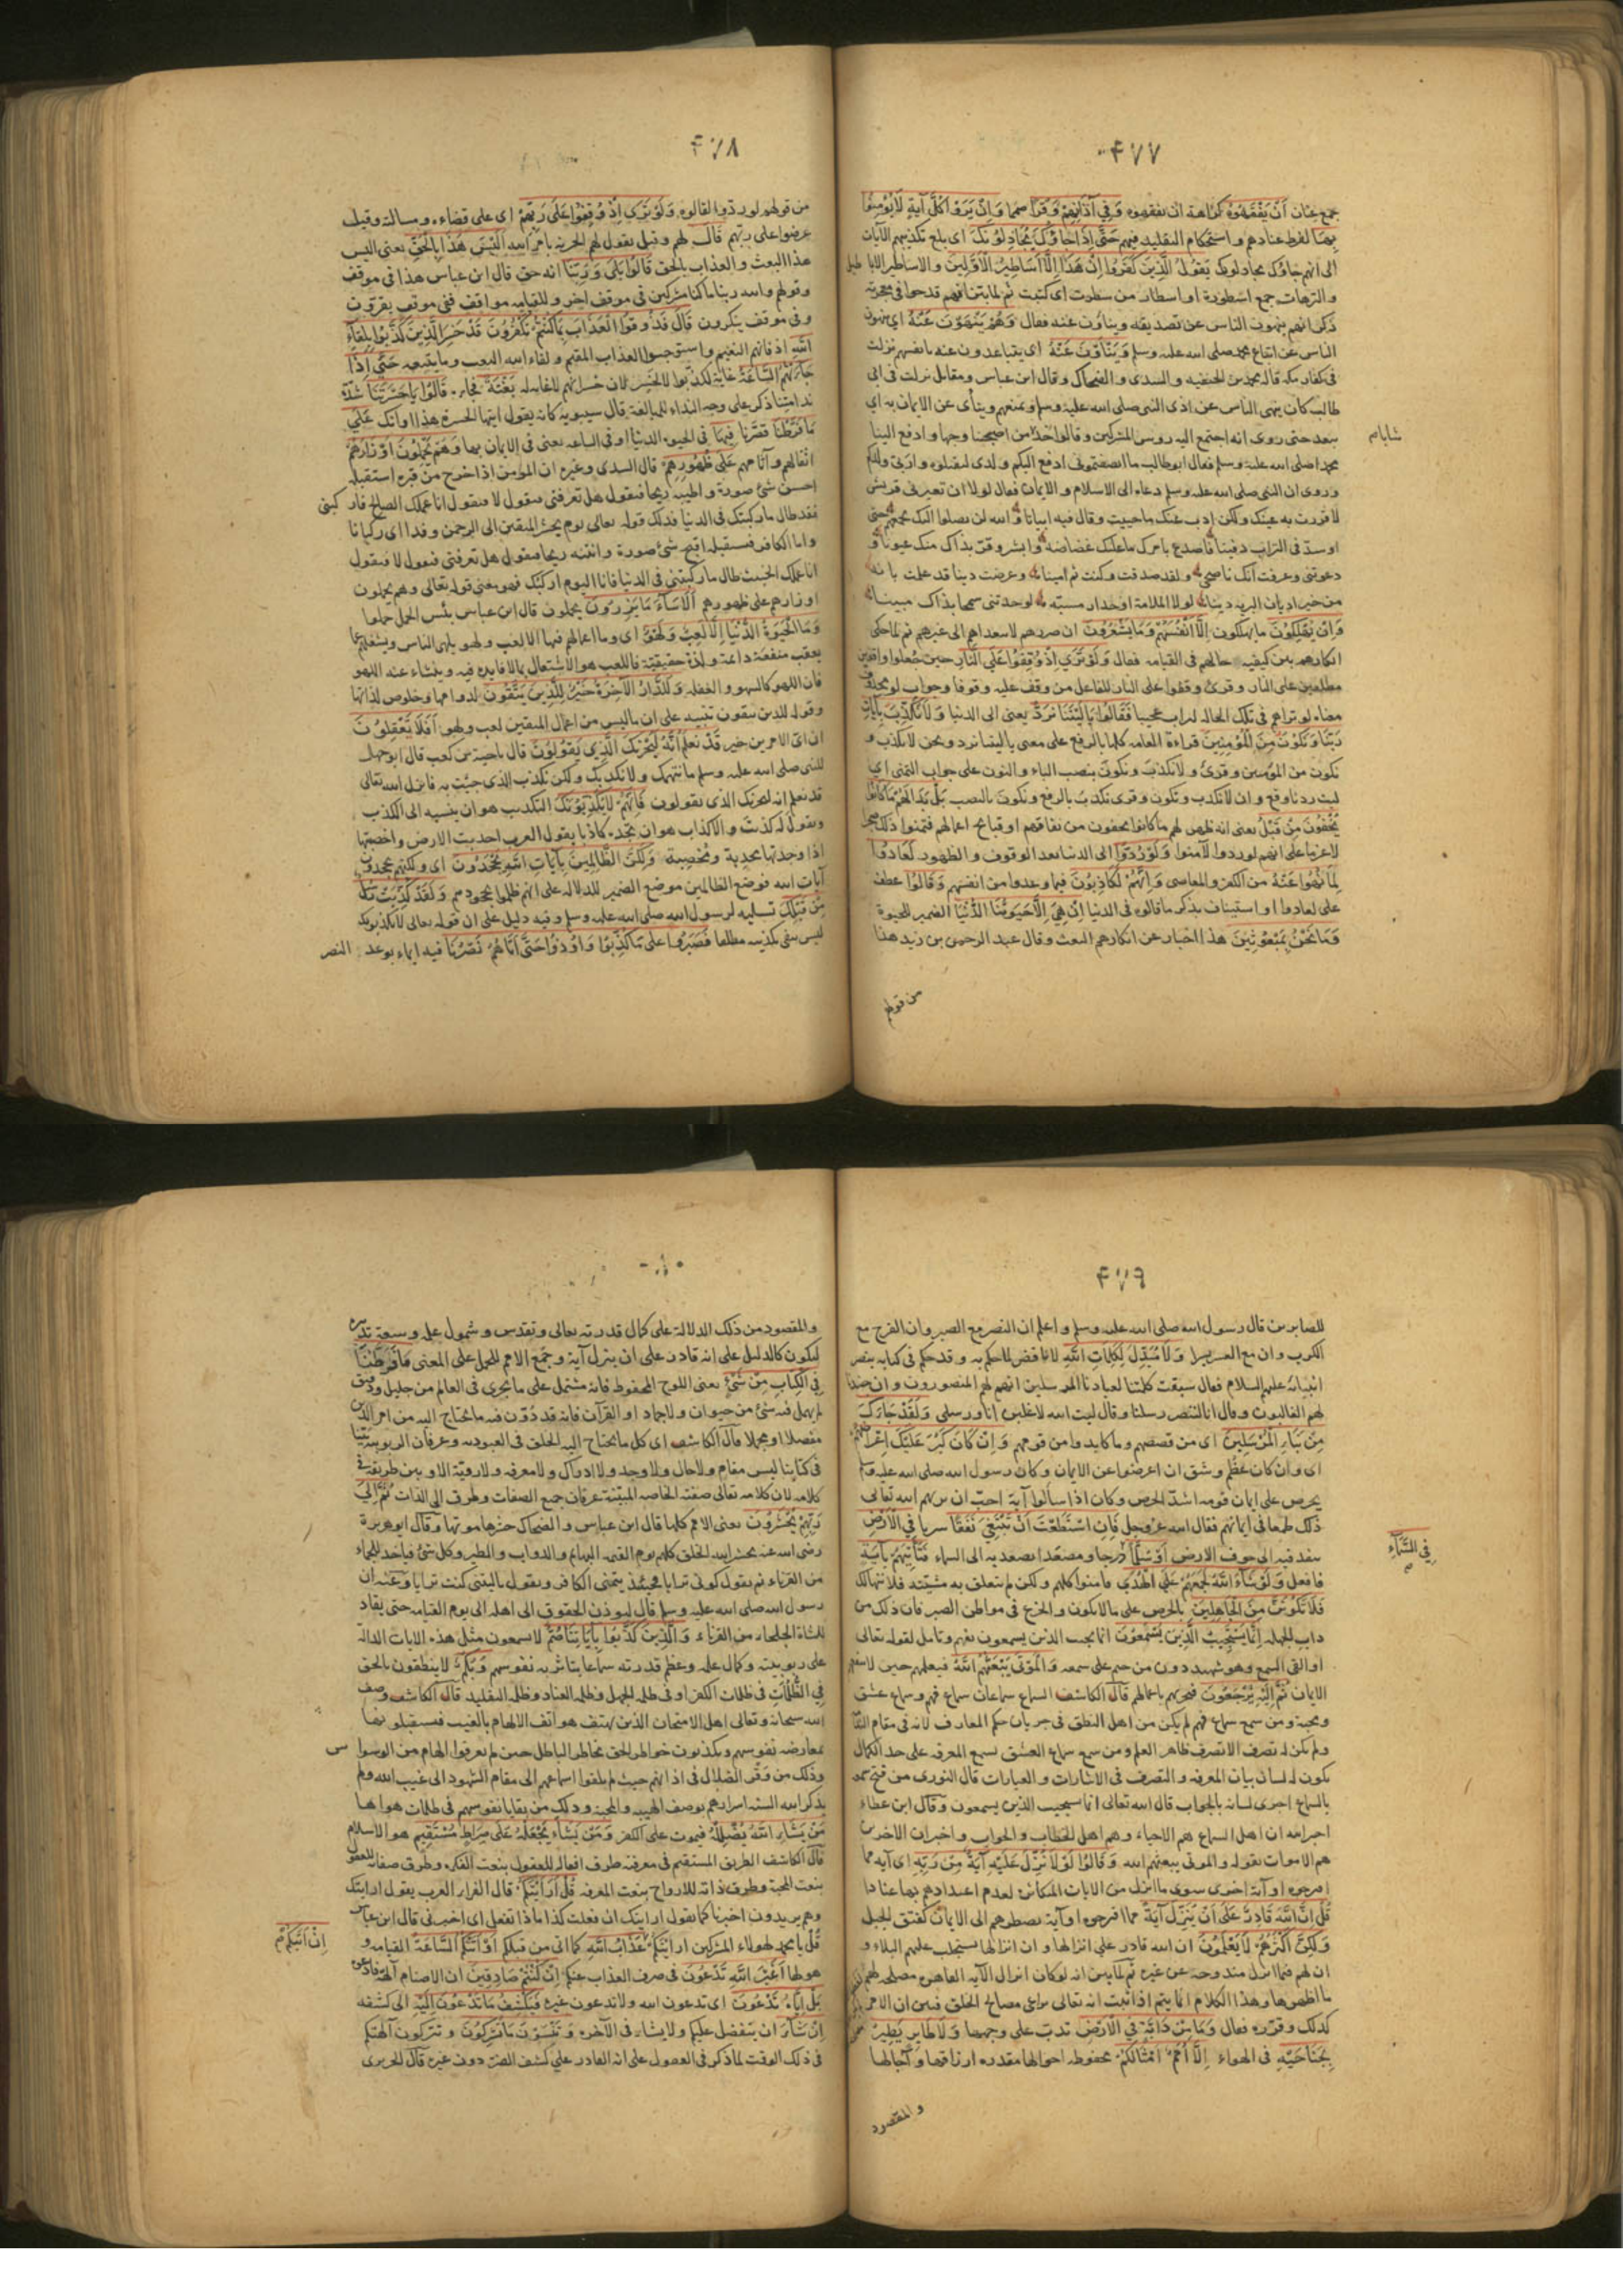 ۴۷۷
جمع عنان أَنْ يَفْقَهُوهُ كراهة ان يفقهوه وَفِي آذَانِهِمْ وَقْرًا صمما وَإِنْ يَرَوْا كُلَّ آيَةٍ لَا يُؤْمِنُوا
بِهَا لفرط عنادهم واستحكام التقليد فيهم حَتَّى إِذَا جَاؤُكَ يُجَادِلُونَكَ اى بلغ تكذيبهم الآيات
الى انهم جاؤك يجادلونك يَقُولُ الَّذِينَ كَفَرُوا إِنْ هَذَا إِلَّا أَسَاطِيرُ الْأَوَّلِينَ والاساطير الاباطيل
والترهات جمع اسطورة او اسطار من سطرت اى كتبت ثم لما بين انهم قدحوا فى معجزته
ذكر انهم ينهون الناس عن تصديقه وينأون عنه فقال وَهُمْ يَنْهَوْنَ عَنْهُ اى ينهون
الناس عن اتباع محمد صلى الله عليه وسلم وَيَنْأَوْنَ عَنْهُ اى يتباعدون عنه بانفسهم نزلت
فى كفار مكة قاله محمد بن الحنفيه والسدى والضحاك وقال ابن عباس ومقاتل نزلت فى ابى
طالب كان ينهى الناس عن اذى النبى صلى الله عليه وسلم ويمنعهم وينأى عن الايمان به اى
يبعد حتى روى انه اجتمع اليه روس المشركين وقالوا خذ من اصبحنا وجها وادفع الينا
شابا م
محمدا صلى الله عليه وسلم فقال ابو طالب ما انصفتمونى ادفع اليكم ولدى لتقتلوه واربى ولدكم
وروى ان النبى صلى الله عليه وسلم دعاه الى الاسلام والايمان فقال لولا ان تعيرنى قريش
لاقررت به عينك ولكن اذب عنك ما حييت وقال فيه ابياتا والله لن يصلوا اليك بجمعهم حتى
اوسد فى التراب دفينا فاصدع بامرك ما عليك غضاضة وابشر وقر بذاك منك عيونا و
دعوتنى وعرفت انك ناصحى ولقد صدقت وكنت ثم امينا وعرضت دينا قد علمت بانه
من خير اديان البريه دينا لولا الملامة او حذار مسبة لوجدتنى سمحا بذاك مبينا
وَإِنْ يُهْلِكُونَ ما يهلكون إِلَّا أَنْفُسَهُمْ وَمَا يَشْعُرُونَ ان ضررهم لا يتعداهم الى غيرهم ثم لما حكى
انكارهم بين كيفيه حالهم فى القيامه فقال وَلَوْ تَرَى إِذْ وُقِفُوا عَلَى النَّارِ حين جعلوا واقفين
مطلعين على النار وقرئ وقفوا على النار للفاعل من وقف عليه وقوفا وجواب لو محذوف
معناه لو تراهم فى تلك الحاله لرايت عجيبا فَقَالُوا يَا لَيْتَنَا نُرَدُّ يعنى الى الدنيا وَلَا نُكَذِّبَ بِآيَاتِ
رَبِّنَا وَنَكُونَ مِنَ الْمُؤْمِنِينَ قراءة العامه كلها بالرفع على معنى ياليتنا نرد ونحن لا نكذب و
نكون من المؤمنين وقرئ ولا نكذبَ ونكونَ بنصب الباء والنون على جواب التمنى اى
ليت ردنا وقع وان لا نكذب ونكون وقرى نكذب بالرفع ونكون بالنصب بَلْ بَدَا لَهُمْ مَا كَانُوا
يُخْفُونَ مِنْ قَبْلُ يعنى انه ظهر لهم ما كانوا يخفون من نفاقهم او قبايح اعمالهم فتمنوا ذلك ضجرا
لا عزما على انهم لو ردوا لآمنوا وَلَوْ رُدُّوا الى الدنيا بعد الوقوف والظهور لَعَادُوا
لِمَا نُهُوا عَنْهُ من الكفر والمعاصى وَإِنَّهُمْ لَكَاذِبُونَ فيما وعدوا من انفسهم وَقَالُوا عطف
على لعادوا او استيناف بذكر ما قالوه فى الدنيا إِنْ هِيَ إِلَّا حَيَوتُنَا الدُّنْيَا الضمير للحيوة
وَمَا نَحْنُ بِمَبْعُوثِينَ هذا اخبار عن انكارهم البعث وقال عبد الرحمن بن زيد هذا
من قولهم
۴۷۸
من قولهم لو ردوا لقالوه وَلَوْ تَرَى إِذْ وُقِفُوا عَلَى رَبِّهِمْ اى على قضاءه ومسالته وقيل
عرضوا على ربهم قَالَ لهم وقيل يقول لهم الخزنه بامر الله أَلَيْسَ هَذَا بِالْحَقِّ يعنى اليس
هذا البعث والعذاب بالحق قَالُوا بَلَى وَرَبِّنَا انه حق قال ابن عباس هذا فى موقف
وقولهم والله ربنا ما كنا مشركين فى موقف اخر وللقيامه مواقف ففى موقف يقرون
وفى موقف ينكرون قَالَ فَذُوقُوا الْعَذَابَ بِمَا كُنْتُمْ تَكْفُرُونَ قَدْ خَسِرَ الَّذِينَ كَذَّبُوا بِلِقَاءِ
اللَّهِ اذ فاتهم النعيم واستوجبوا العذاب المقيم ولقاء الله البعث وما يتبعه حَتَّى إِذَا
جَاءَتْهُمُ السَّاعَةُ غاية لكذبوا لا لخسر لان خسرانهم لا غاية له بَغْتَةً فجاءة قَالُوا يَا حَسْرَتَنَا شدة
ندامتنا ذكر على وجه النداء للمبالغة قال سيبويه كانه يقول ايتها الحسرة هذا اوانك عَلَى
مَا فَرَّطْنَا قصرنا فِيهَا فى الحيوة الدنيا او فى الساعه يعنى فى الايمان بها وَهُمْ يَحْمِلُونَ أَوْزَارَهُمْ
اثقالهم وآثامهم عَلَى ظُهُورِهِمْ قال السدى وغيره ان المؤمن اذا خرج من قبره استقبله
احسن شئ صورة واطيبه ريحا فيقول هل تعرفنى فيقول لا فيقول انا عملك الصالح فاركبنى
فقد طال ما ركبتك فى الدنيا فذلك قوله تعالى يوم نحشر المتقين الى الرحمن وفدا اى ركبانا
واما الكافر فيستقبله اقبح شئ صورة وانتنه ريحا فيقول هل تعرفنى فيقول لا فيقول
انا عملك الخبيث طال ما ركبتنى فى الدنيا فانا اليوم اركبك فهو معنى قوله تعالى وهم يحملون
اوزارهم على ظهورهم أَلَا سَاءَ مَا يَزِرُونَ يحملون قال ابن عباس بئس الحمل حملوا
وَمَا الْحَيَوةُ الدُّنْيَا إِلَّا لَعِبٌ وَلَهْوٌ اى وما اعمالهم فيها الا لعب ولهو يلهى الناس ويشغلهم عما
يعقب منفعة دائمة ولذة حقيقية فاللعب هو الاشتغال بما لا فايدة فيه وينشاء عنه اللهو
فان اللهو كالسهو والغفله وَلَلدَّارُ الْآخِرَةُ خَيْرٌ لِلَّذِينَ يَتَّقُونَ لدوامها وخلوص لذاتها
وقوله للذين يتقون تنبيه على ان ما ليس من اعمال المتقين لعب ولهو أَفَلَا تَعْقِلُونَ
ان اى الامرين خير قَدْ نَعْلَمُ إِنَّهُ لَيَحْزُنُكَ الَّذِي يَقُولُونَ قال ناجية بن كعب قال ابو جهل
للنبى صلى الله عليه وسلم ما نتهمك ولا نكذبك ولكن نكذب الذى جئت به فانزل الله تعالى
قد نعلم انه ليحزنك الذى يقولون فَإِنَّهُمْ لَا يُكَذِّبُونَكَ التكذيب هو ان ينسبه الى الكذب
ويقول له كذبت والاكذاب هو ان يجده كاذبا يقول العرب احدبت الارض واخصبتها
اذا وجدتها مجدبة ومخصبة وَلَكِنَّ الظَّالِمِينَ بِآيَاتِ اللَّهِ يَجْحَدُونَ اى ولكنهم يجحدون
آيات الله فوضع الظالمين موضع الضمير للدلاله على انهم ظلموا بجحودهم وَلَقَدْ كُذِّبَتْ رُسُلٌ
مِنْ قَبْلِكَ تسليه لرسول الله صلى الله عليه وسلم وفيه دليل على ان قوله تعالى لا يكذبونك
ليس بنفى تكذيبه مطلقا فَصَبَرُوا عَلَى مَا كُذِّبُوا وَأُوذُوا حَتَّى أَتَاهُمْ نَصْرُنَا فيه ايماء بوعد النصر
۴۷۹
للصابرين قال رسول الله صلى الله عليه وسلم واعلم ان النصر مع الصبر وان الفرج مع
الكرب وان مع العسر يسرا وَلَا مُبَدِّلَ لِكَلِمَاتِ اللَّهِ لا ناقض لما حكم به وقد حكم فى كتابه بنصر
انبيائه عليهم السلام فقال سبقت كلمتنا لعبادنا المرسلين انهم لهم المنصورون وان جندنا
لهم الغالبون وقال انا لننصر رسلنا وقال كتب الله لاغلبن انا ورسلى وَلَقَدْ جَاءَكَ
مِنْ نَبَإِ الْمُرْسَلِينَ اى من قصصهم وما كابدوا من قومهم وَإِنْ كَانَ كَبُرَ عَلَيْكَ إِعْرَاضُهُمْ
اى وان كان عظم وشق ان اعرضوا عن الايمان وكان رسول الله صلى الله عليه وسلم
يحرص على ايمان قومه اشد الحرص وكان اذا سألوا آية احب ان يريهم الله تعالى
ذلك طمعا فى ايمانهم فقال الله عز وجل فَإِنِ اسْتَطَعْتَ أَنْ تَبْتَغِيَ نَفَقًا سربا فِي الْأَرْضِ
ينفد فيه الى جوف الارض أَوْ سُلَّمًا درجا ومصعدا يصعد به الى السماء فَتَأْتِيَهُمْ بِآيَةٍ
فِي السَّمَاءِ م
فافعل وَلَوْ شَاءَ اللَّهُ لَجَمَعَهُمْ عَلَى الْهُدَى فآمنوا كلهم ولكن لم يتعلق به مشيته فلا تتهالك
فَلَا تَكُونَنَّ مِنَ الْجَاهِلِينَ بالحرص على ما لا يكون والجزع فى مواطن الصبر فان ذلك من
داب الجهله إِنَّمَا يَسْتَجِيبُ الَّذِينَ يَسْمَعُونَ انما يجيب الذين يسمعون بفهم وتامل لقوله تعالى
او القى السمع وهو شهيد دون من ختم على سمعه وَالْمَوْتَى يَبْعَثُهُمُ اللَّهُ فيعلمهم حين لا ينفعهم
الايمان ثُمَّ إِلَيْهِ يُرْجَعُونَ فيجزيهم باعمالهم قال الكاشف السماع سماعان سماع فهم وسماع عشق
ومحبة ومن سمع سماع فهم لم يكن من اهل النطق فى جريان حكم المعارف لانه فى مقام
ولم يكن له تصرف الا تصرف ظاهر العلم ومن سمع سماع العشق لسمع المعرفه على حد الكمال
يكون له لسان بيان المعرفه والتصرف فى الاشارات والعبارات قال النورى من فتح سمعه
بالسماع اجرى لسانه بالجواب قال الله تعالى انما يستجيب الذين يسمعون وقال ابن عطاء
اخبر الله ان اهل السماع هم الاحياء وهم اهل الخطاب والجواب واخبر ان الاخرين
هم الاموات بقوله والموتى يبعثهم الله وَقَالُوا لَوْلَا نُزِّلَ عَلَيْهِ آيَةٌ مِنْ رَبِّهِ اى آية مما
اقترحوه او آية اخرى سوى ما انزل من الايات المتكاثرة لعدم اعتدادهم بها عنادا
قُلْ إِنَّ اللَّهَ قَادِرٌ عَلَى أَنْ يُنَزِّلَ آيَةً مما اقترحوه او آية يضطرهم الى الايمان كنتق الجبل
وَلَكِنَّ أَكْثَرَهُمْ لَا يَعْلَمُونَ ان الله قادر على انزالها وان انزالها يستجلب عليهم البلاء و
ان لهم فيما انزل مندوحة عن غيره ثم لما بين انه لو كان انزال الآيه القاهره مصلحه لهم
ما اظهرها وهذا الكلام انما يتم اذا ثبت انه تعالى يراعى مصالح الخلق فبين ان الامر
كذلك وقرره فقال وَمَا مِنْ دَابَّةٍ فِي الْأَرْضِ تدب على وجهها وَلَا طَائِرٍ يَطِيرُ
بِجَنَاحَيْهِ فى الهواء إِلَّا أُمَمٌ أَمْثَالُكُمْ محفوظه احوالها مقدره ارزاقها وآجالها
والمقصود
والمقصود من ذلك الدلالة على كمال قدرته تعالى وتقدس وشمول علمه وسعة تدبيره
ليكون كالدليل على انه قادر على ان ينزل آية وجمع الامم للحمل على المعنى مَا فَرَّطْنَا
فِي الْكِتَابِ مِنْ شَيْءٍ يعنى اللوح المحفوظ فانه مشتمل على ما يجرى فى العالم من جليل ودقيق
لم يهمل فيه شئ من حيوان ولا جماد او القرآن فانه قد دون فيه ما يحتاج اليه من امر الدين
مفصلا او مجملا قال الكاشف اى كل ما يحتاج اليه الخلق فى العبوديه وعرفان الربوبيه بينا
فى كتابنا ليس مقام ولا حال ولا وجد ولا ادراك ولا معرفه ولا رؤية الا وبين طريقه فى
كلامه لان كلامه تعالى صفته الخاصه المبينة عرفان جميع الصفات وطرق الى الذات ثُمَّ إِلَى
رَبِّهِمْ يُحْشَرُونَ يعنى الامم كلها قال ابن عباس والضحاك حشرها موتها وقال ابو هريرة
رضى الله عنه يحشر الله الخلق كلهم يوم القيمه البهايم والدواب والطير وكل شئ فياخذ للجماء
من القرناء ثم يقول كونى ترابا فحينئذ يتمنى الكافر ويقول ياليتنى كنت ترابا وعنه ان
رسول الله صلى الله عليه وسلم قال لتؤدن الحقوق الى اهلها يوم القيامه حتى يقاد
للشاة الجلحاء من القرناء وَالَّذِينَ كَذَّبُوا بِآيَاتِنَا صُمٌّ لا يسمعون مثل هذه الايات الدالة
على ربوبيته وكمال علمه وعظم قدرته سماعا يتاثر به نفوسهم وَبُكْمٌ لا ينطقون بالحق
فِي الظُّلُمَاتِ فى ظلمات الكفر او فى ظلمه الجهل وظلمه العناد وظلمه التقليد قال الكاشف وصف
الله سبحانه وتعالى اهل الامتحان الذين يهتف هواتف الالهام بالغيب فيستقبلونها
بمعارضه نفوسهم ويكذبون خواطر الحق بخاطر الباطل حين لم يعرفوا الهام من الوسواس
وذلك من وقر الضلال فى اذانهم حيث لم يلقوا اسماعهم الى مقام الشهود الى غيب الله ولم
يذكر الله السنة اسرارهم بوصف الهيبه والمحبة وذلك من بقايا نفوسهم فى ظلمات هواها
مَنْ يَشَأِ اللَّهُ يُضْلِلْهُ فيموت على الكفر وَمَنْ يَشَأْ يَجْعَلْهُ عَلَى صِرَاطٍ مُسْتَقِيمٍ هو الاسلام
قال الكاشف الطريق المستقيم فى معرفته طرق افعاله للعقول بنعت الفكره وطرق صفاته للقلوب
بنعت المحبة وطرق ذاته للارواح بنعت المعرفه قُلْ أَرَأَيْتَكُمْ قال الفراء العرب يقول ارايتك
وهم يريدون اخبرنا كما يقول ارايتك ان فعلت كذا ماذا تفعل اى اخبرنى قال ابن عباس
قُلْ يا محمد لهولاء المشركين ارايتكم عَذَابُ اللَّهِ كما اتى من قبلكم أَوْ أَتَتْكُمُ السَّاعَةُ القيامه و
إِنْ أَتَيكُمْ م
هولها أَغَيْرَ اللَّهِ تَدْعُونَ فى صرف العذاب عنكم إِنْ كُنْتُمْ صَادِقِينَ ان الاصنام آلهة فادعوه
بَلْ إِيَّاهُ تَدْعُونَ اى تدعون الله ولا تدعون غيره فَيَكْشِفُ مَا تَدْعُونَ إِلَيْهِ الى كشفه
إِنْ شَاءَ ان يتفضل عليكم ولا يشاء فى الآخره وَتَنْسَوْنَ مَا تُشْرِكُونَ وتتركون آلهتكم
فى ذلك الوقت لما ذكر فى العقول على انه القادر على كشف الضر دون غيره قال الجريرى